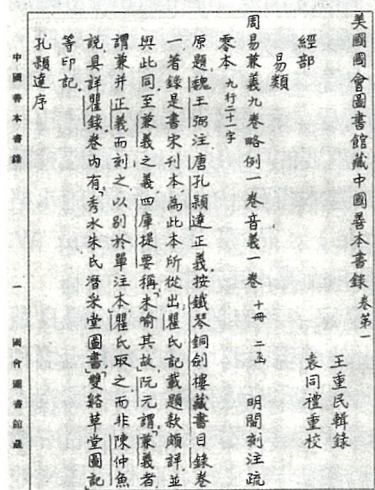 美國國會圖書館藏中國善本書錄 卷第一
王重民輯錄
袁同禮重校
經部
易類
周易兼義九卷略例一卷音義一卷 十冊 二函 明閩刻注疏
零本 九行二十一字
原題魏王弼注唐孔穎達正義按鐵琴銅劍樓藏書目錄卷
一著錄是書宋刊本為此本所從出瞿氏記載題款頗詳並
與此同至兼義之義四庫提要稱未喻其故阮元謂兼義者
謂兼并正義而刻之以別於單注本瞿氏取之而非陳仲魚
說具詳瞿錄卷內有秀水朱氏潛采堂圖書雙谿草堂圖記
等印記
孔穎達序
中國善本書錄
一
國會圖書館藏